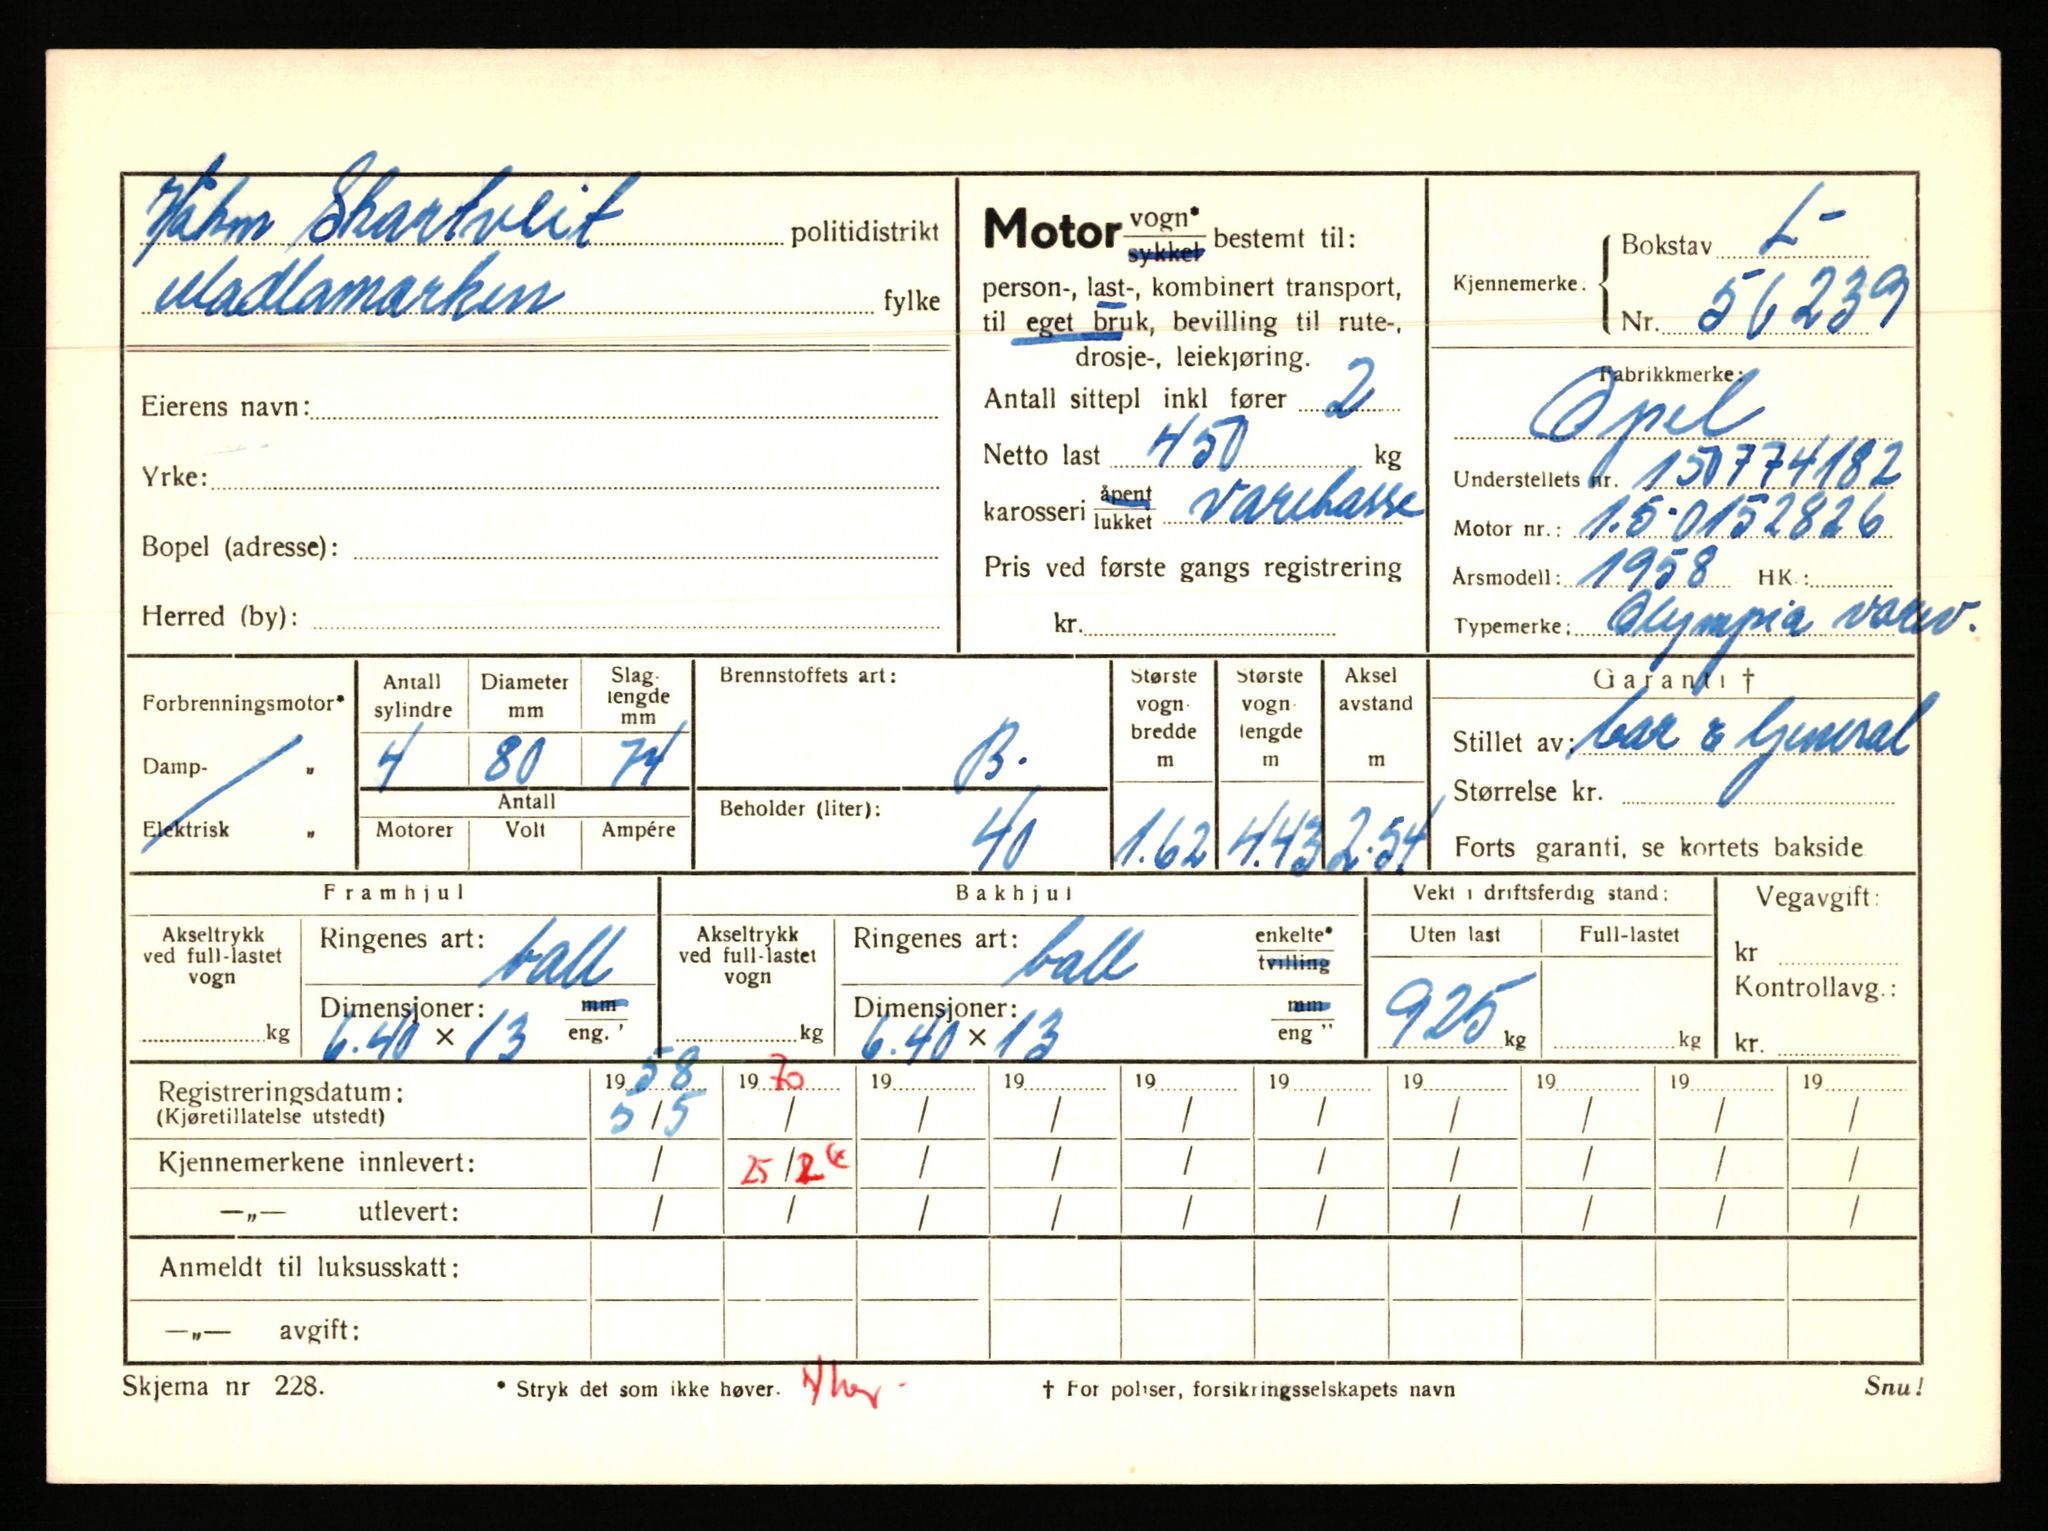 Skartveit politidistrikt
Madlamarken fylke
Eierens navn:
Yrke:
Bopel (adresse):
Herred (by):
Motor vogn* bestemt til:
sykkel
person-, last-, kombinert transport,
til eget bruk, bevilling til rute-,
drosje-, leiekjøring.
Antall sittepl inkl fører 2
Netto last 450 kg
karosseri åpent varekasse
lukket
Pris ved første gangs registrering
kr.
Kjennemerke:
Bokstav L-
Nr. 56239
Fabrikkmerke:
Opel
Understellets nr. 150774182
Motor nr.: 1.5-0152826
Årsmodell: 1958 HK.:
Typemerke: Olympia varev.
Forbrenningsmotor*
Damp- „
Elektrisk „
Antall sylindre
4
Diameter mm
80
Slag-lengde mm
74
Antall
Motorer Volt Ampére
Brennstoffets art:
B.
Beholder (liter):
40
Største vogn-bredde m
1.62
Største vogn-lengde m
4.43
Aksel avstand m
2.54
Garanti †
Stillet av: Car & General
Størrelse kr.
Forts garanti, se kortets bakside
Framhjul
Akseltrykk ved full-lastet vogn
kg
Ringenes art: ball
Dimensjoner: mm
6.40 × 13 eng. "
Bakhjul
Akseltrykk ved full-lastet vogn
kg
Ringenes art: ball enkelte*
tvilling
Dimensjoner: mm
6.40 × 13 eng "
Vekt i driftsferdig stand:
Uten last Full-lastet
925 kg kg
Vegavgift:
kr
Kontrollavg.:
kr.
Registreringsdatum: 19 58 19 70 19 19 19 19 19 19 19 19
(Kjøretillatelse utstedt) 5/5 / / / / / / / / /
Kjennemerkene innlevert: / 25/2 / / / / / / / /
—„— utlevert: / / / / / / / / / /
Anmeldt til luksusskatt:
—„— avgift:
Skjema nr 228. * Stryk det som ikke høver. † For poliser, forsikringsselskapets navn Snu!